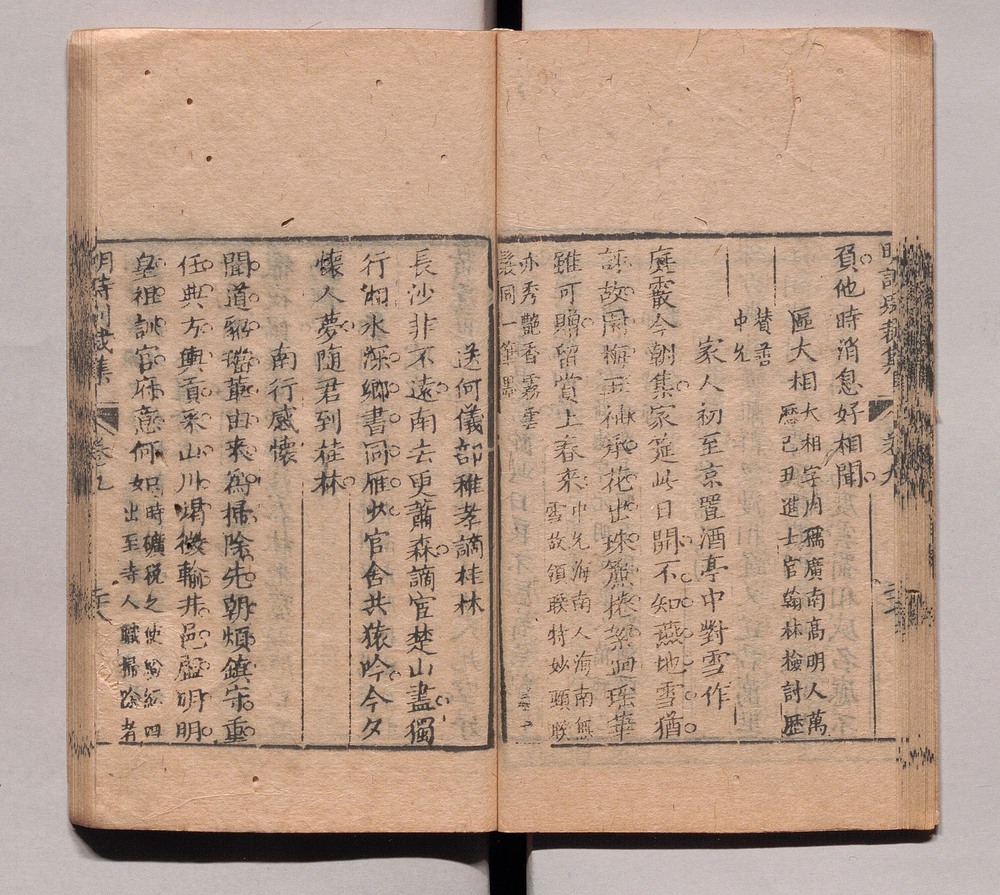 明詩別裁集
卷九
負他時消息好相聞
區大相
大相字用孺廣南高明人萬
歷己丑進士官翰林檢討歷
贊善
中允
家人初至京置酒亭中對雪作
庭霰今朝集家筵此日開不知燕地雪猶
訝故園梅玉袖承花出珠簾捲絮迴瑤華
雖可贈留賞上春來
中允海南人海南無
雪故頷聯特妙頸聯
亦秀艷香霧雲
鬟同一筆墨
送何儀部稚孝謫桂林
長沙非不遠南去更蕭森謫宦楚山盡獨
行湘水深鄉書同雁少官舍共猿吟今夕
懷人夢隨君到桂林
南行感懷
聞道貂璫輩由來爲掃除先朝煩鎮守重
任典方輿貢采山川竭徵輸井邑虛明明
皇祖訓官府意何如
時礦稅之使紛紜四
出至寺人職掃除者
明詩別裁集
卷九